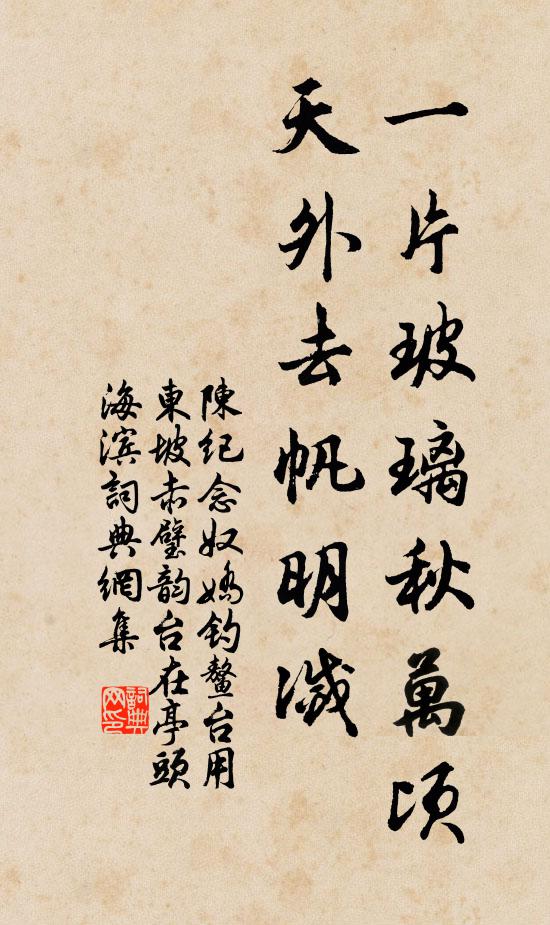 一片玻璃秋萬頃
天外去帆明滅
陳紀念奴嬌釣鼇台用
東坡赤壁韵台在亭頭
海滨詞典網集
詞典網印